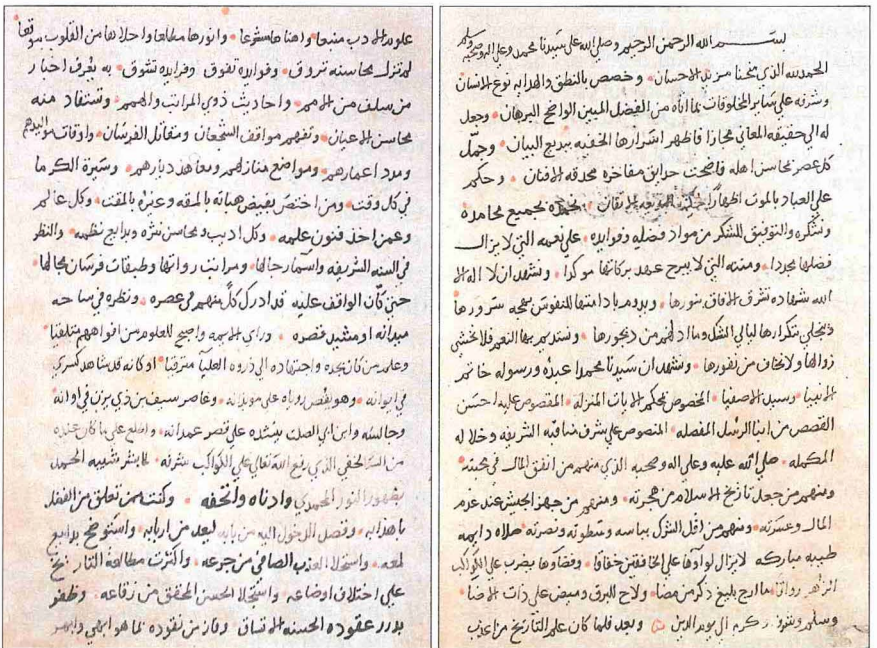 بسم الله الرحمن الرحيم وصلى الله على سيدنا محمد وعلى اله وصحبه وسلم
الحمد لله الذي منحنا مزيد الاحسان وخصص بالنطق والهدايه نوع الانسان
وشرفه على ساير المخلوقات بما اتاه من الفضل المبين الواضح البرهان وجعل
له الى حقيقه المعاني مجازا فاظهر اسرارها الخفيه ببديع البيان وجمل
كل عصر بمحاسن اهله فاضحت حدايق مفاخره محدقه الافنان وحكم
على العباد بالموت اظهارا الاتقان نحمده بجميع محامده
ونشكره والتوفيق للشكر من مواد فضله وفوايده على نعمه التي لا يزال
فضلها مجددا ومننه التي لا يبرح عهد بركاتها موكدا ونشهد ان لا اله الا
الله شهاده تشرق الافاق بنورها ويدوم بادامتها للنفوس بهجه سرورها
وينجلي بتكرارها ليالي الشك وما ادلهم من ديجورها ونستديم بها النعم فلا نخشى
زوالها ولا نخاف من نفورها ونشهد ان سيدنا محمدا عبده ورسوله خاتم
الانبيا وسيد الاصفيا المخصوص بمحكم الايات المنزله المقصوص عليه احسن
القصص من انبا الرسل المفصله المنصوص على شرف مناقبه الشريفه وخلاله
المكمله صلى الله عليه وعلى اله وصحبه الذي منهم من انفق المال في محبته
ومنهم من جعل تاريخ الاسلام من هجرته ومنهم من جهز الجيش عند عدم
المال وعسرته ومنهم من اذل الشرك بباسه وسطوته ونصرته صلاه دايمه
طيبه مباركه لا يزال لواوها على الخافقين خفاقا وفضاوها يضرب على الكواكب
الزهر رواقا ما ارج بليغ ذكر من مضا ولاح للبرق وميض على ذات الاضا
وسلم وشرف وكرم الى يوم الدين وبعد فلما كان علم التاريخ من اعذب
علوم الادب منبعا واهناها مشرعا وانورها مطلعا واحلاها من القلوب موقعا
لم تزل محاسنه تروق وفوايده تفوق وفرايده تشوق به يعرف اخبار
من سلف من الامم واحاديث ذوي المراتب والهمم وتستفاد منه
محاسن الاعيان وتفهم مواقف الشجعان ومقاتل الفرسان واوقات مواليدهم
ومدد اعمارهم ومواضع منازلهم ومعاهد ديارهم وسيرة الكرما
في كل وقت ومن اختص بفيض هباته بالمقه وغيره بالمقت وكل عالم
وعمن اخذ فنون علمه وكل اديب ومحاسن نثره وبدايع نظمه والنظر
في السنه الشريفه واسما رجالها ومراتب رواتها وطبقات فرسان مجالها
حتى كان الواقف عليه قد ادرك كلا منهم في عصره ونظره في ساحه
ميدانه او مشيد قصره وراى الايمه واصبح للعلوم من افواههم متلقنا
وعلم من كان بجده واجتهاده الى ذروه العليا مترقيا او كانه قد شاهد كسرى
في ايوانه وهو يقص روياه على موبذانه وعاصر سيف بن ذي يزن في اوانه
وجالسه وابن ابي الصلت ينشده على قصر غمدانه واطلع على ما كان عنده
من السر الخفي الذي رفع الله تعالى على الكواكب شرفه لما بشر شيبه الحمد
بظهور النور المحمدي وادناه واتحفه وكنت ممن تعلق من الفضل
باهدابه وقصد الدخول اليه من بابه لبعد من اربابه واستوضح بدايع
لمعه واستحلا العذب الصافي من جرعه واكثرت مطالعة التاريخ
على اختلاف اوضاعه واستجلا الحسن المحقق من رقاعه وظفر
بدرر عقوده الحسنه الاتساق وفاز من نقوده بما هو ابهى وابهر